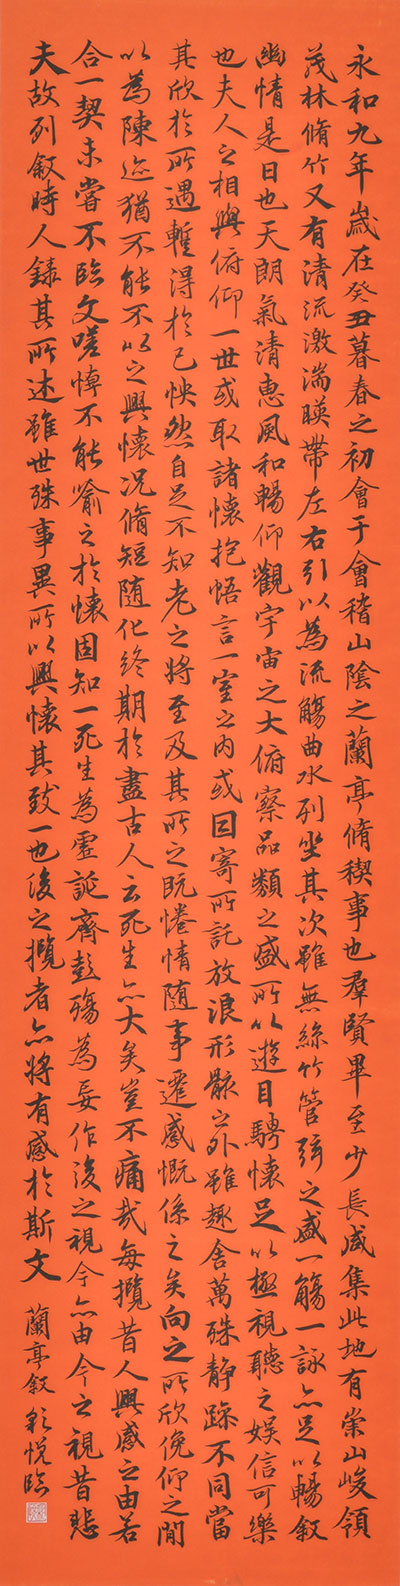 永和九年歲在癸丑暮春之初會于會稽山陰之蘭亭脩稧事也羣賢畢至少長咸集此地有崇山峻領
茂林脩竹又有清流激湍暎帶左右引以為流觴曲水列坐其次雖無絲竹管弦之盛一觴一詠亦足以暢叙
幽情是日也天朗氣清惠風和暢仰觀宇宙之大俯察品類之盛所以遊目騁懷足以極視聽之娛信可樂
也夫人之相與俯仰一世或取諸懷抱悟言一室之內或因寄所託放浪形骸之外雖趣舍萬殊静躁不同當
其欣於所遇暫得於己怏然自足不知老之將至及其所之既惓情隨事遷感慨係之矣向之所欣俛仰之閒
以為陳迹猶不能不以之興懷況脩短随化終期於盡古人云死生亦大矣豈不痛哉每攬昔人興感之由若
合一契未嘗不臨文嗟悼不能喻之於懷固知一死生為虛誕齊彭殤為妄作後之視今亦由今之視昔悲
夫故列叙時人錄其所述雖世殊事異所以興懷其致一也後之攬者亦將有感於斯文 蘭亭叙 彩悅臨